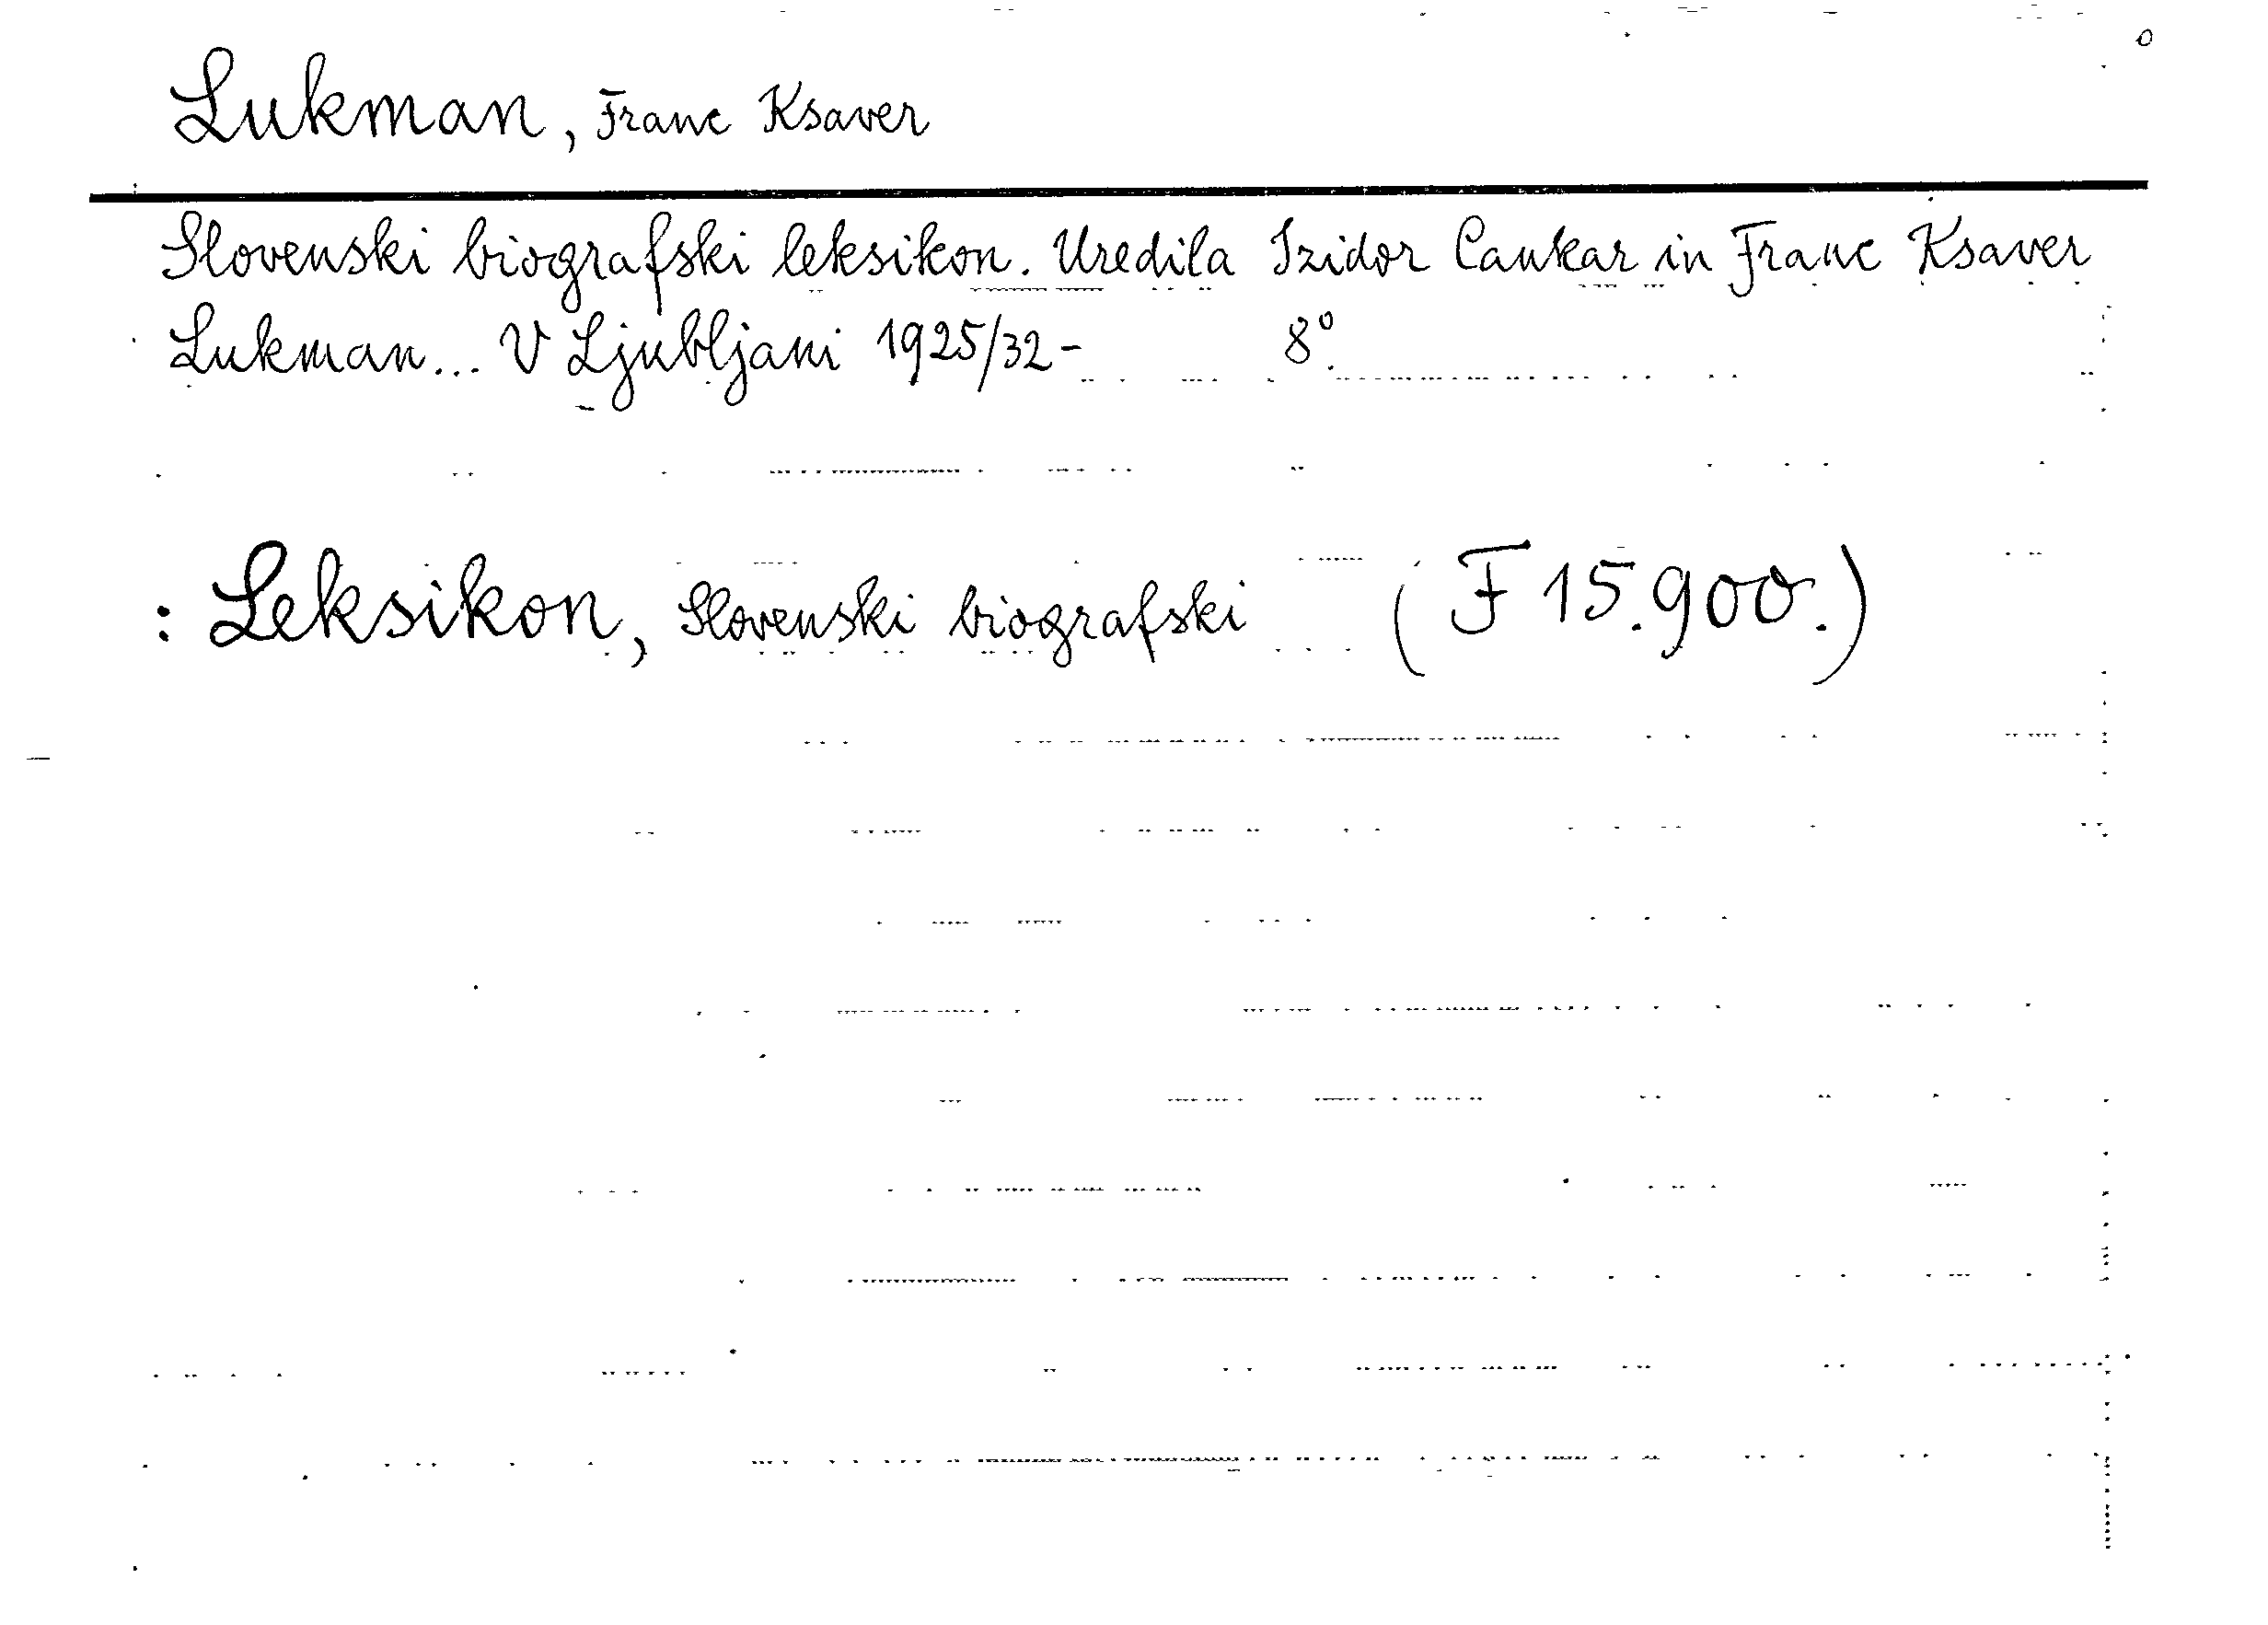 Lukman, Franc Ksaver
Slovenski biografski leksikon. Uredila Izidor Cankar in Franc Ksaver
Lukman... V Ljubljani 1925/32- 8°.
: Leksikon, Slovenski biografski (F 15.900.)